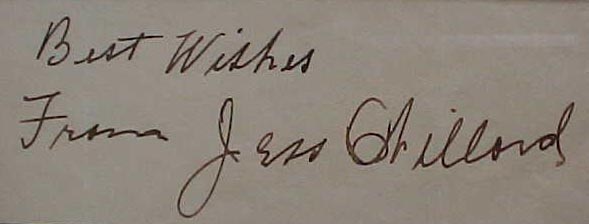 Best Wishes
From Jess Willard